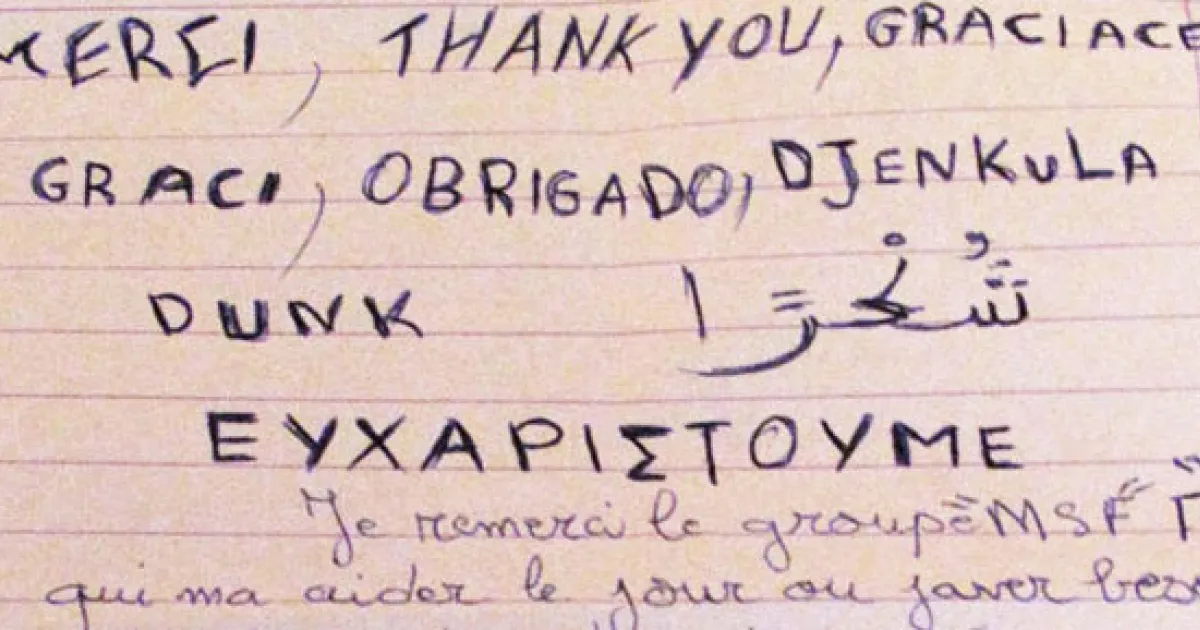 MERCI, THANK YOU, GRACIACE
GRACI, OBRIGADO, DJENKULA
DUNK شُكْرًا
ΕΥΧΑΡΙΣΤΟΥΜΕ
Je remerci le groupè MSF
qui ma aider le jour ou javer